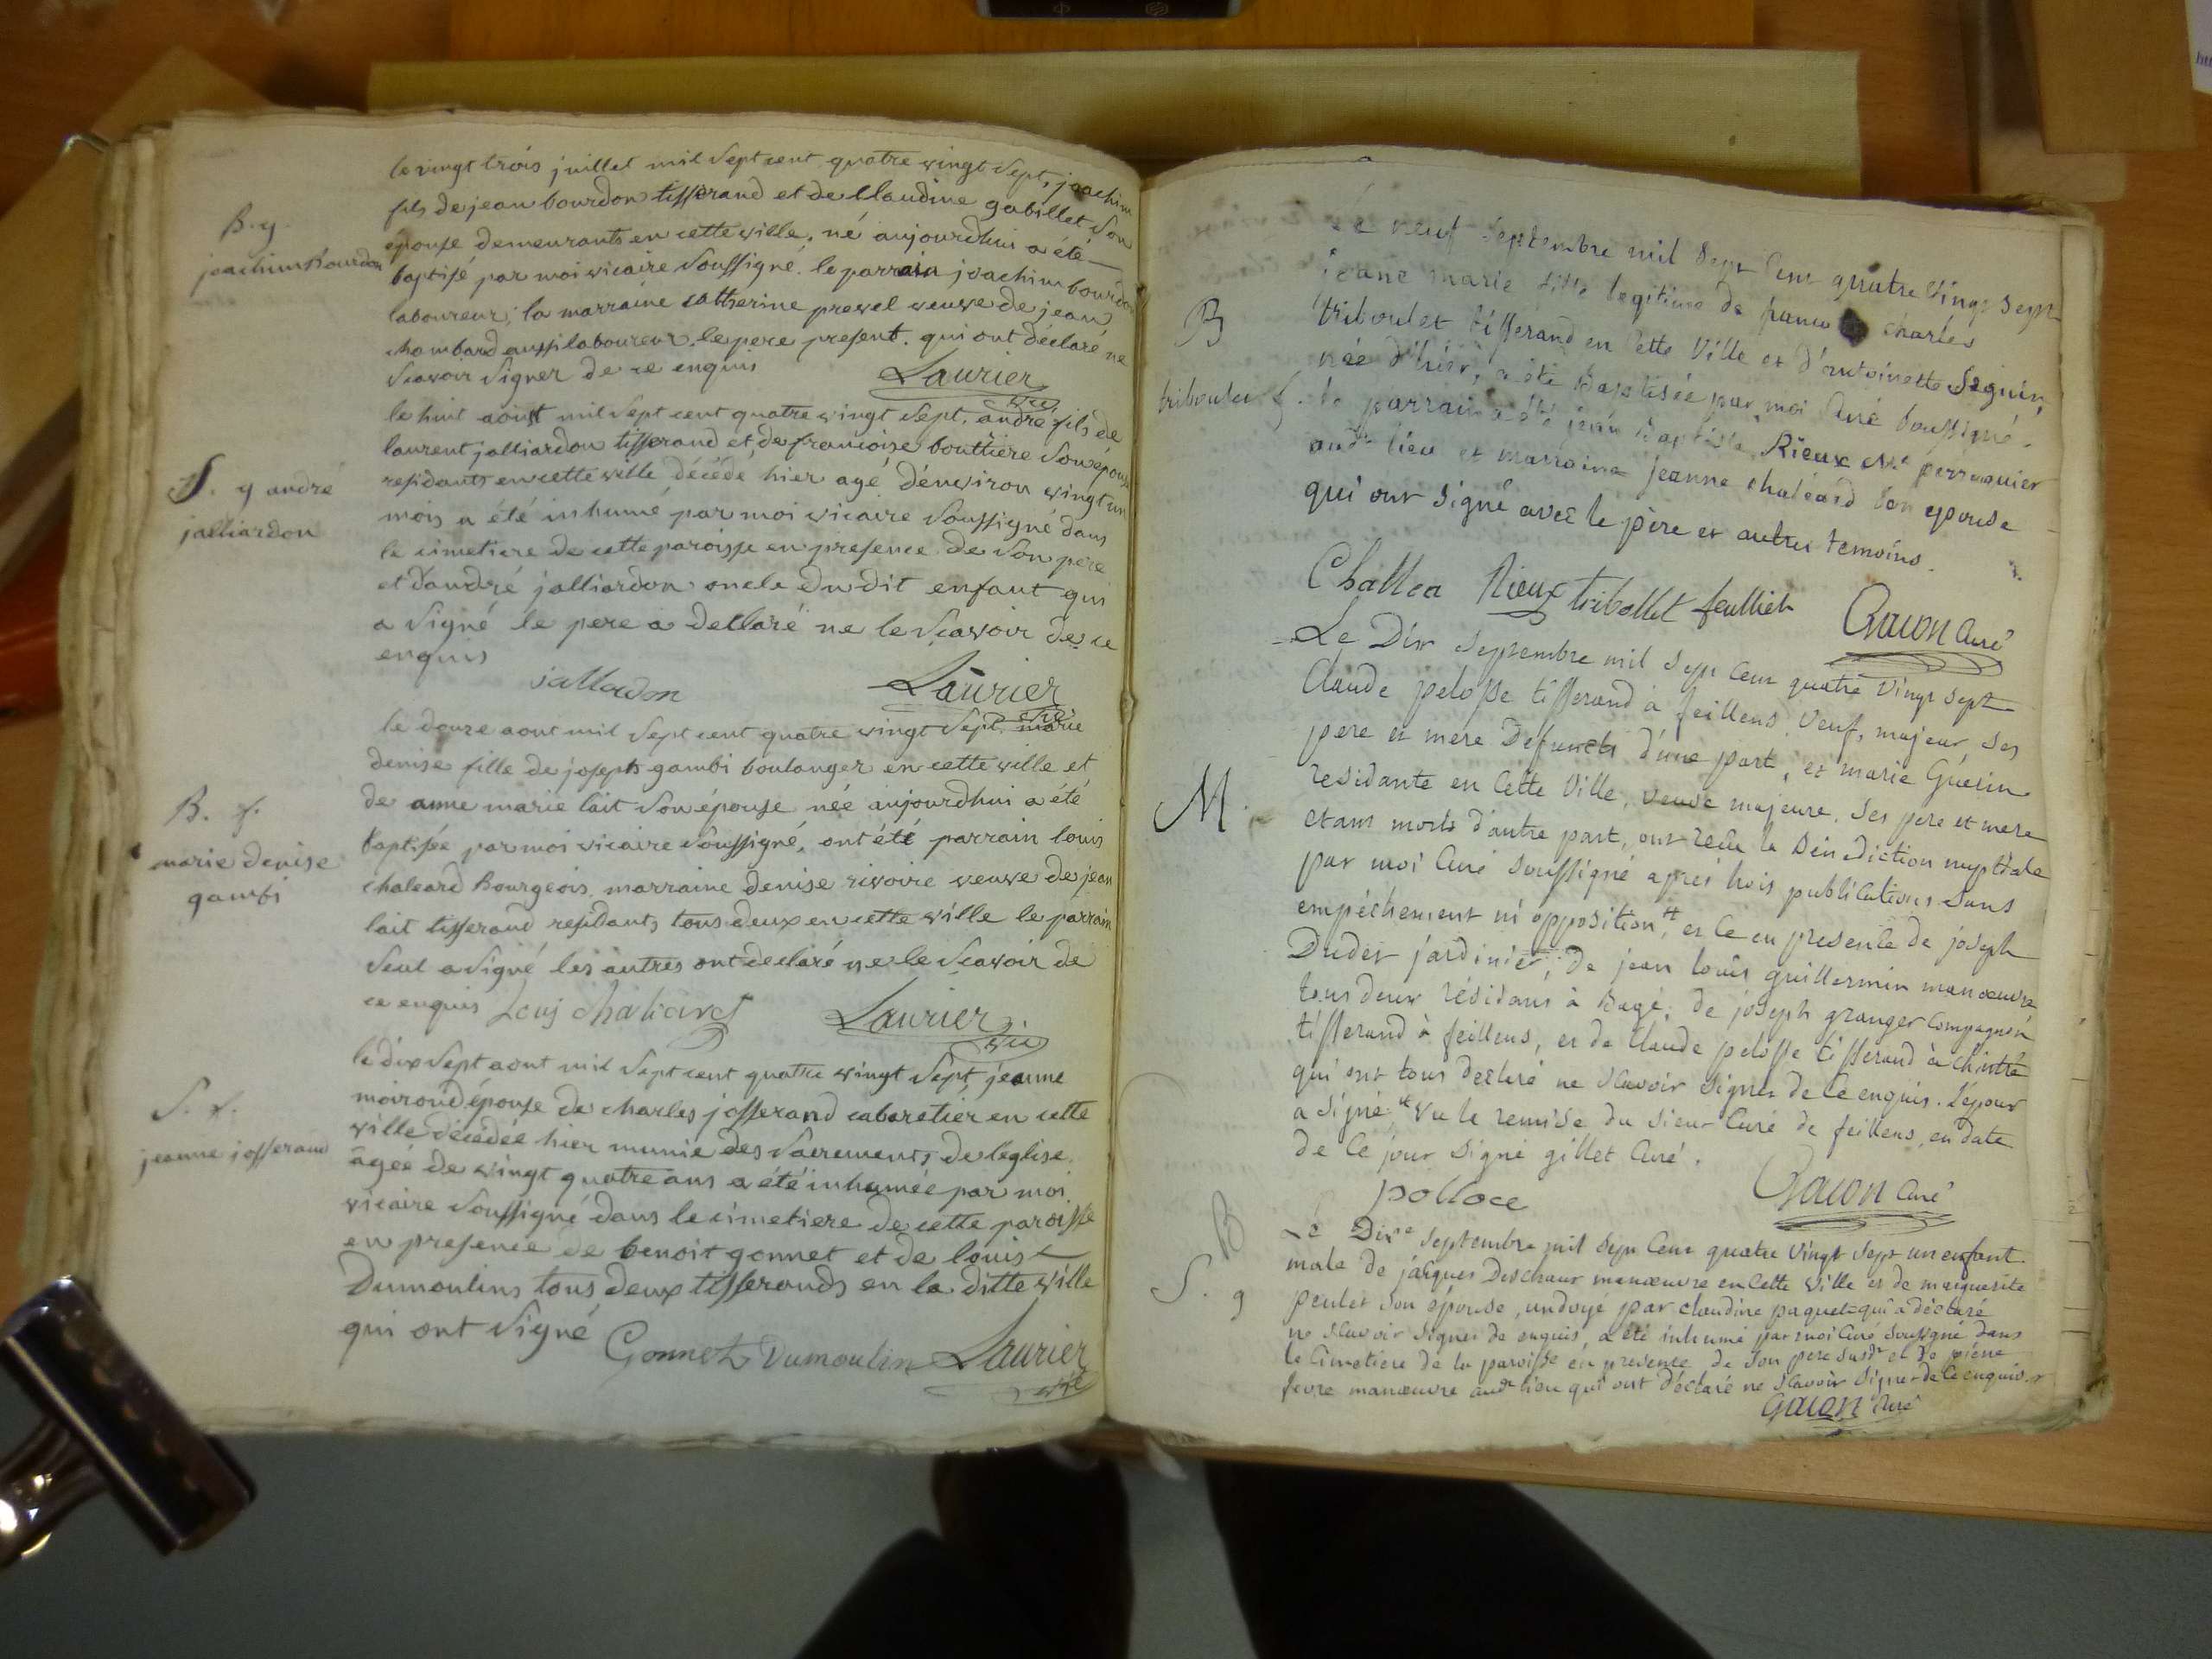 le vingt trois juillet mil sept cent quatre vingt sept, joachim
fils de jean bourdon tisserand et de Claudine gabillet son
épouse demeurants en cette ville, né aujourdhui a été
B. g.
joachim Bourdon
baptisé par moi vicaire soussigné. le parrain joachim bourdon
laboureur, la marraine catherine prevel veuve de jean
chambard aussi laboureur. le pere present. qui ont déclaré ne
scavoir signer de ce enquis
Laurier
vic
le huit aoust mil sept cent quatre vingt sept. andré fils de
laurent jalliardon tisserand et de francoise bouttiere son épouse
S. g andré
jalliardon
residants en cette ville décédé hier agé d'environ vingt un
mois a été inhumé par moi vicaire soussigné dans
le cimetiere de cette paroisse en presence de son pere
et d'andré jalliardon oncle du dit enfant qui
a signé le pere a dellaré ne le scavoir de ce
enquis
jalladon
Laurier
vic
le douze aout mil sept cent quatre vingt sept. marie
denise fille de joseph gambi boulanger en cette ville et
B. f.
marie denise
gambi
de anne marie lait son épouse née aujourdhui a été
baptisée par moi vicaire soussigné, ont été parrain louis
chaleard Bourgeois. marraine denise rivoire veuve de jean
lait tisserand residants tous deux en cette ville le parrain
seul a signé les autres ont declaré ne le scavoir de
ce enquis Louis chaleard
Laurier
vic
le dix sept aout mil sept cent quatre vingt sept, jeanne
S. f.
jeanne josserand
moiroud épouse de charles josserand cabaretier en cette
ville décédée hier munie des sacrements de l'eglise.
agée de vingt quatre ans a été inhumée par moi
vicaire soussigné dans le cimetiere de cette paroisse
en presence de benoit gonnet et de louis
Dumoulins tous deux tisserands en la ditte ville
qui ont signé
Gonnet Dumoulin Laurier
vic
Le neuf septembre mil sept cent quatre vingt sept
jeane marie fille legitime de charles
B
triboulet f.
triboulet tisserand en cette ville et d'antoinette Seguin,
née d'hier, a été Baptisée par moi Curé soussigné.
le parrain a été jean Baptiste Rieux Me perruquier
aud. lieu et marraine jeanne chaleard son epouse
qui ont signé avec le père et autres temoins.
Challea Rieux tribollet feulliet Gacon Curé
Le Dix septembre mil sept cent quatre vingt sept
Claude pelosse tisserand à feillens veuf, majeur, ses
pere et mere Defuncts d'une part, et marie Guérin
M.
residante en cette Ville, veuve majeure. ses pere et mere
etans morts d'autre part, ont recû la Bénédiction nuptiale
par moi Curé soussigné après trois publications sans
empéchement ni opposition, et ce en presence de joseph
Dudet jardinier, de jean louis guillermin manoeuvre
tous deux résidans à Bagé, de joseph granger compagnon
tisserand à feillens, et de Claude pelosse tisserand à Chintré
qui ont tous declaré ne scavoir signer de ce enquis. L'epoux
a signé vu la remise du sieur Curé de feillens, en date
de ce jour signé gillet Curé.
polloce
Gacon Curé
B
S. g
Le Dixe septembre mil sept cent quatre vingt sept un enfant
male de jacques Deschaux manoeuvre en cette ville et de marguerite
peulet son épouse, undoyé par claudine paquet qui a déclaré
ne scavoir signer de enquis, a été inhumé par moi Curé soussigné dans
le Cimetiere de la paroisse en presence de son pere susdt et de pierre
fevre manoeuvre aud. lieu qui ont déclaré ne scavoir signer de ce enquis.
Gacon Curé